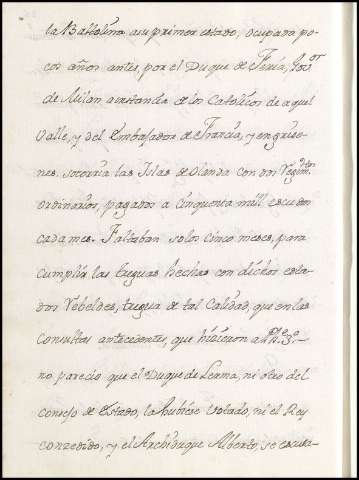 la Baltolina a su primer estado, ocupada po-
cos años antes, por el Duque de Feria, Gov.or
de Milan a instancia de los Catolicos de aquel
Valle, y del Embajador de Francia, y en grise-
nes. socorria las Islas de Olanda con dos Regim.tos
ordinarios, pagados a cinquenta mill escudos
cada mes. Faltaban solos cinco meses, para
cumplir las treguas hechas con dichos esta-
dos Rebeldes, tregua de tal Calidad, que en las
Consultas antecedentes, que hicieron a Ph.e 3.o
no parecio que el Duque de Lerma, ni otro del
consejo de Estado, la hubiese votado, ni el Rey
concedido, y el Archiduque Alberto, se escusa-